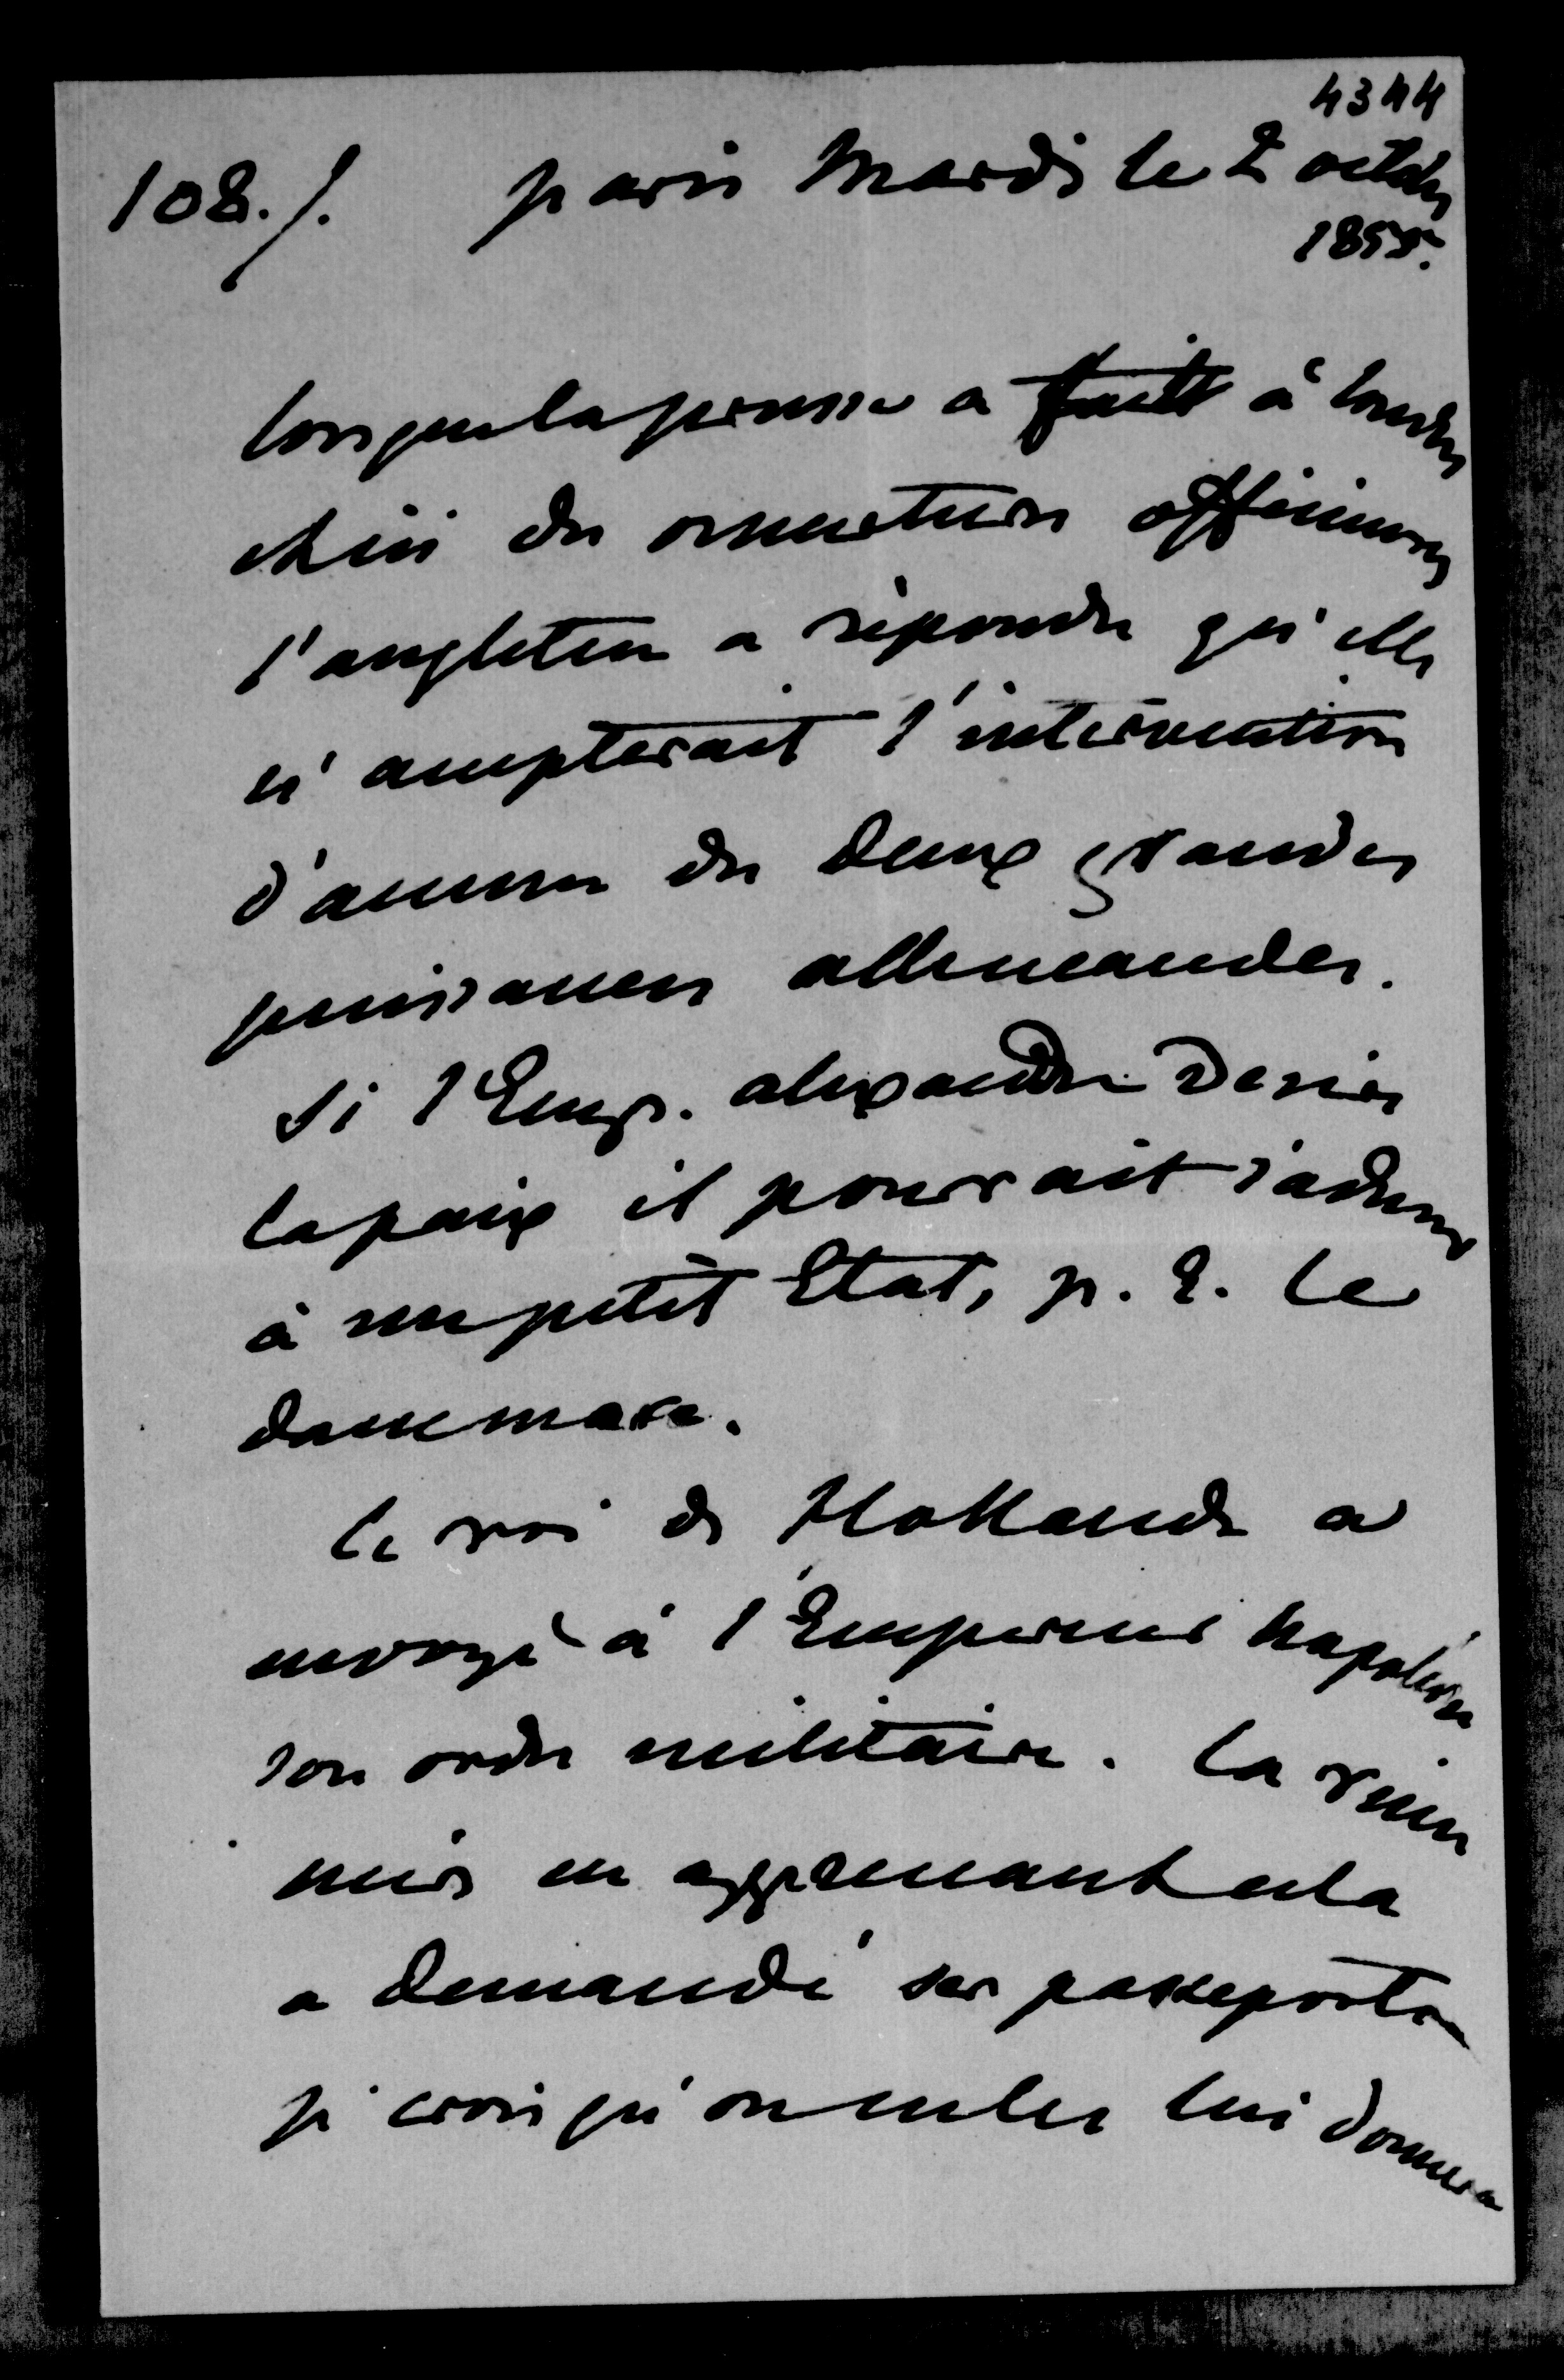 4344
108./. paris Mardi le 2 octobre
1855.
lorsque la prusse a fait à Londres
ici des ouvertures officieuses
l'angleterre a répondu qu'elle
n'accepterait l'intervention
d'aucune des deux grandes
puissances allemandes.
Si l'Emp. alexandre desire
la paix il pourrait s'adresser
à un petit Etat, p. E. le
danemarc.
le roi de Hollande a
envoyé à l'Empereur Napoléon
son ordre militaire. la reine
en apprenant cela
a demandé ses passeports
je crois qu'on ne les lui donnera